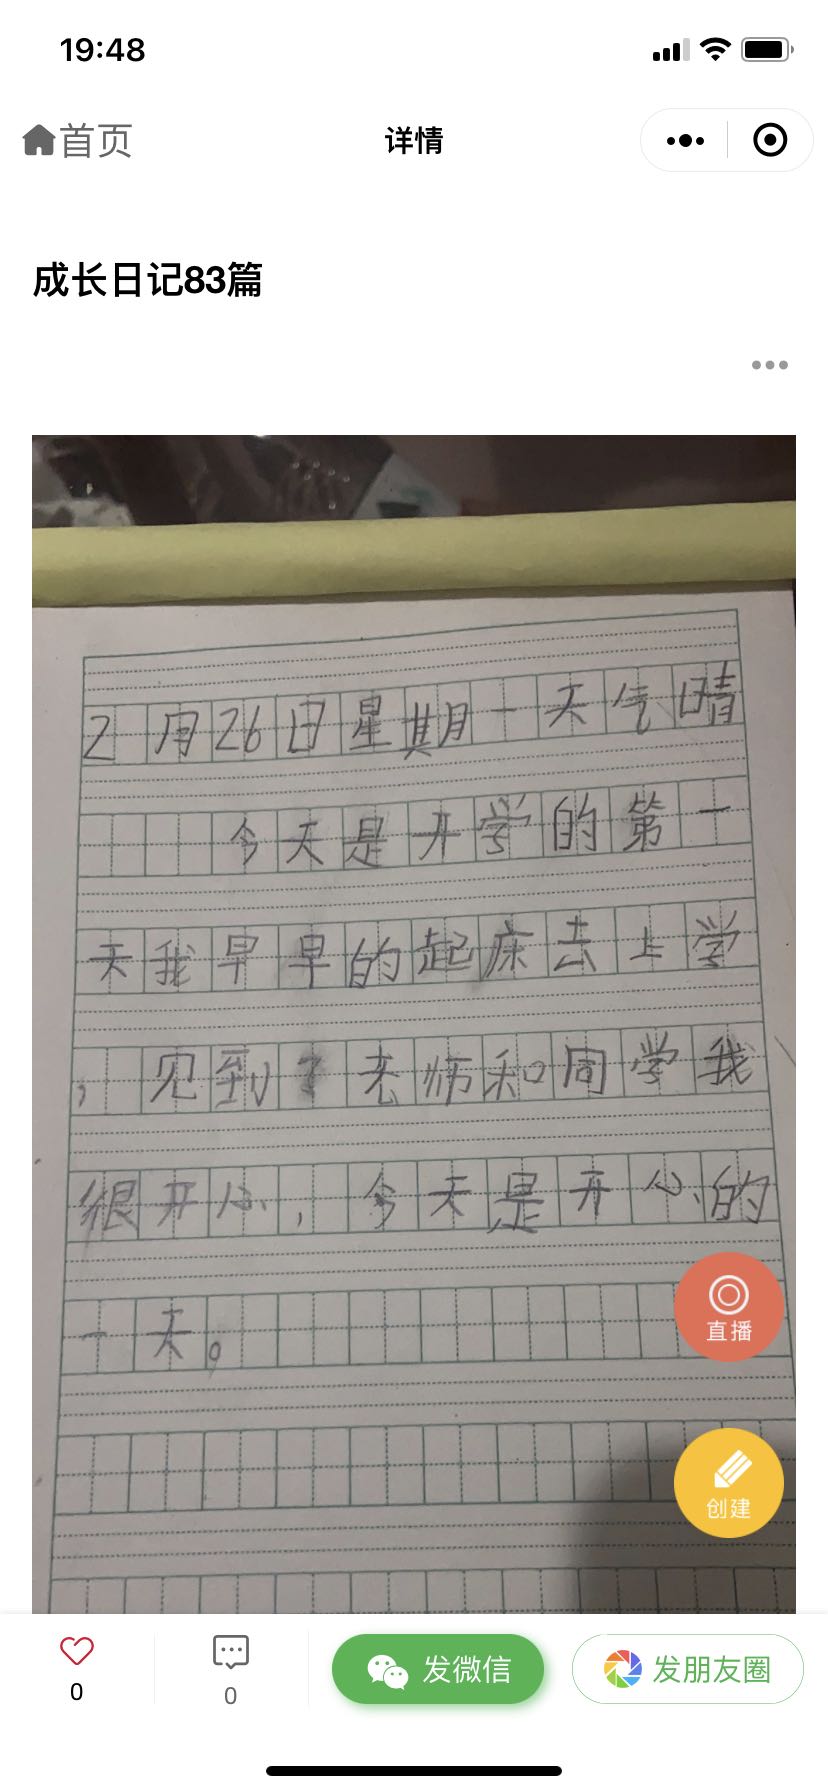 19:48
首页
详情
成长日记83篇
2月26日星期一天气晴
今天是开学的第一
天我早早的起床去上学
，见到了老师和同学我
很开心，今天是开心的
一天。
直播
创建
0
0
发微信
发朋友圈